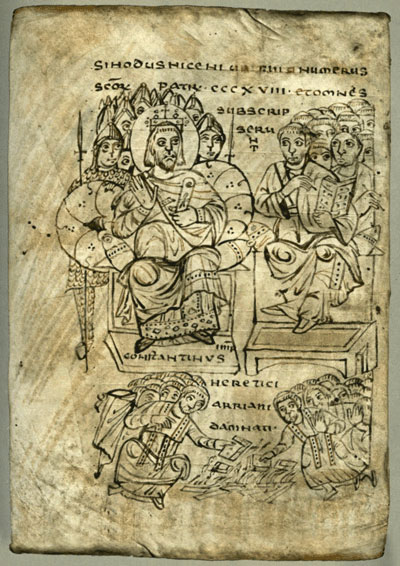 SINODUS NICENI NUMERUS
SCOR PATR · CCCXVIII · ET OMNES
SUBSCRIP
SERU
NT
IMP
CONSTANTINUS
HERETICI
ARRIANI
DAMNATI·